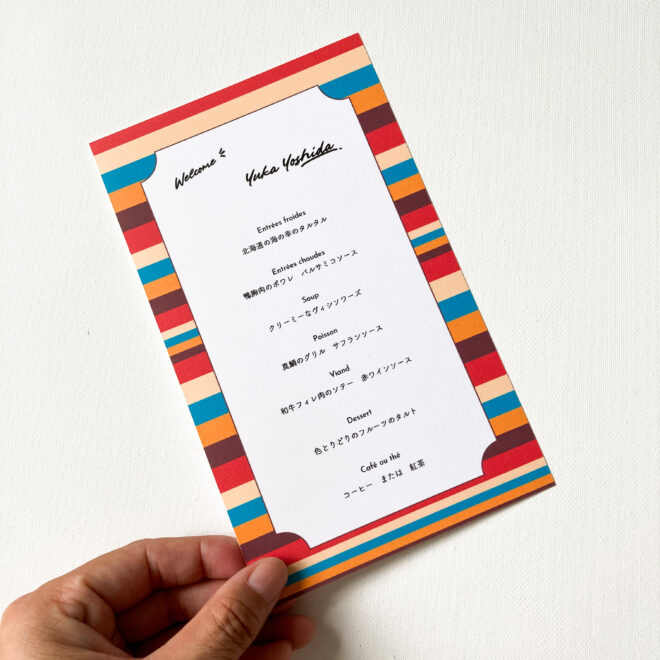 Welcome
Yuka Yoshida.
Entrées froides
北海道の海の幸のタルタル
Entrées chaudes
鴨胸肉のポワレ　バルサミコソース
Soup
クリーミーなヴィシソワーズ
Poisson
真鯛のグリル　サフランソース
Viand
和牛フィレ肉のソテー　赤ワインソース
Dessert
色とりどりのフルーツのタルト
Café ou thé
コーヒー　または　紅茶